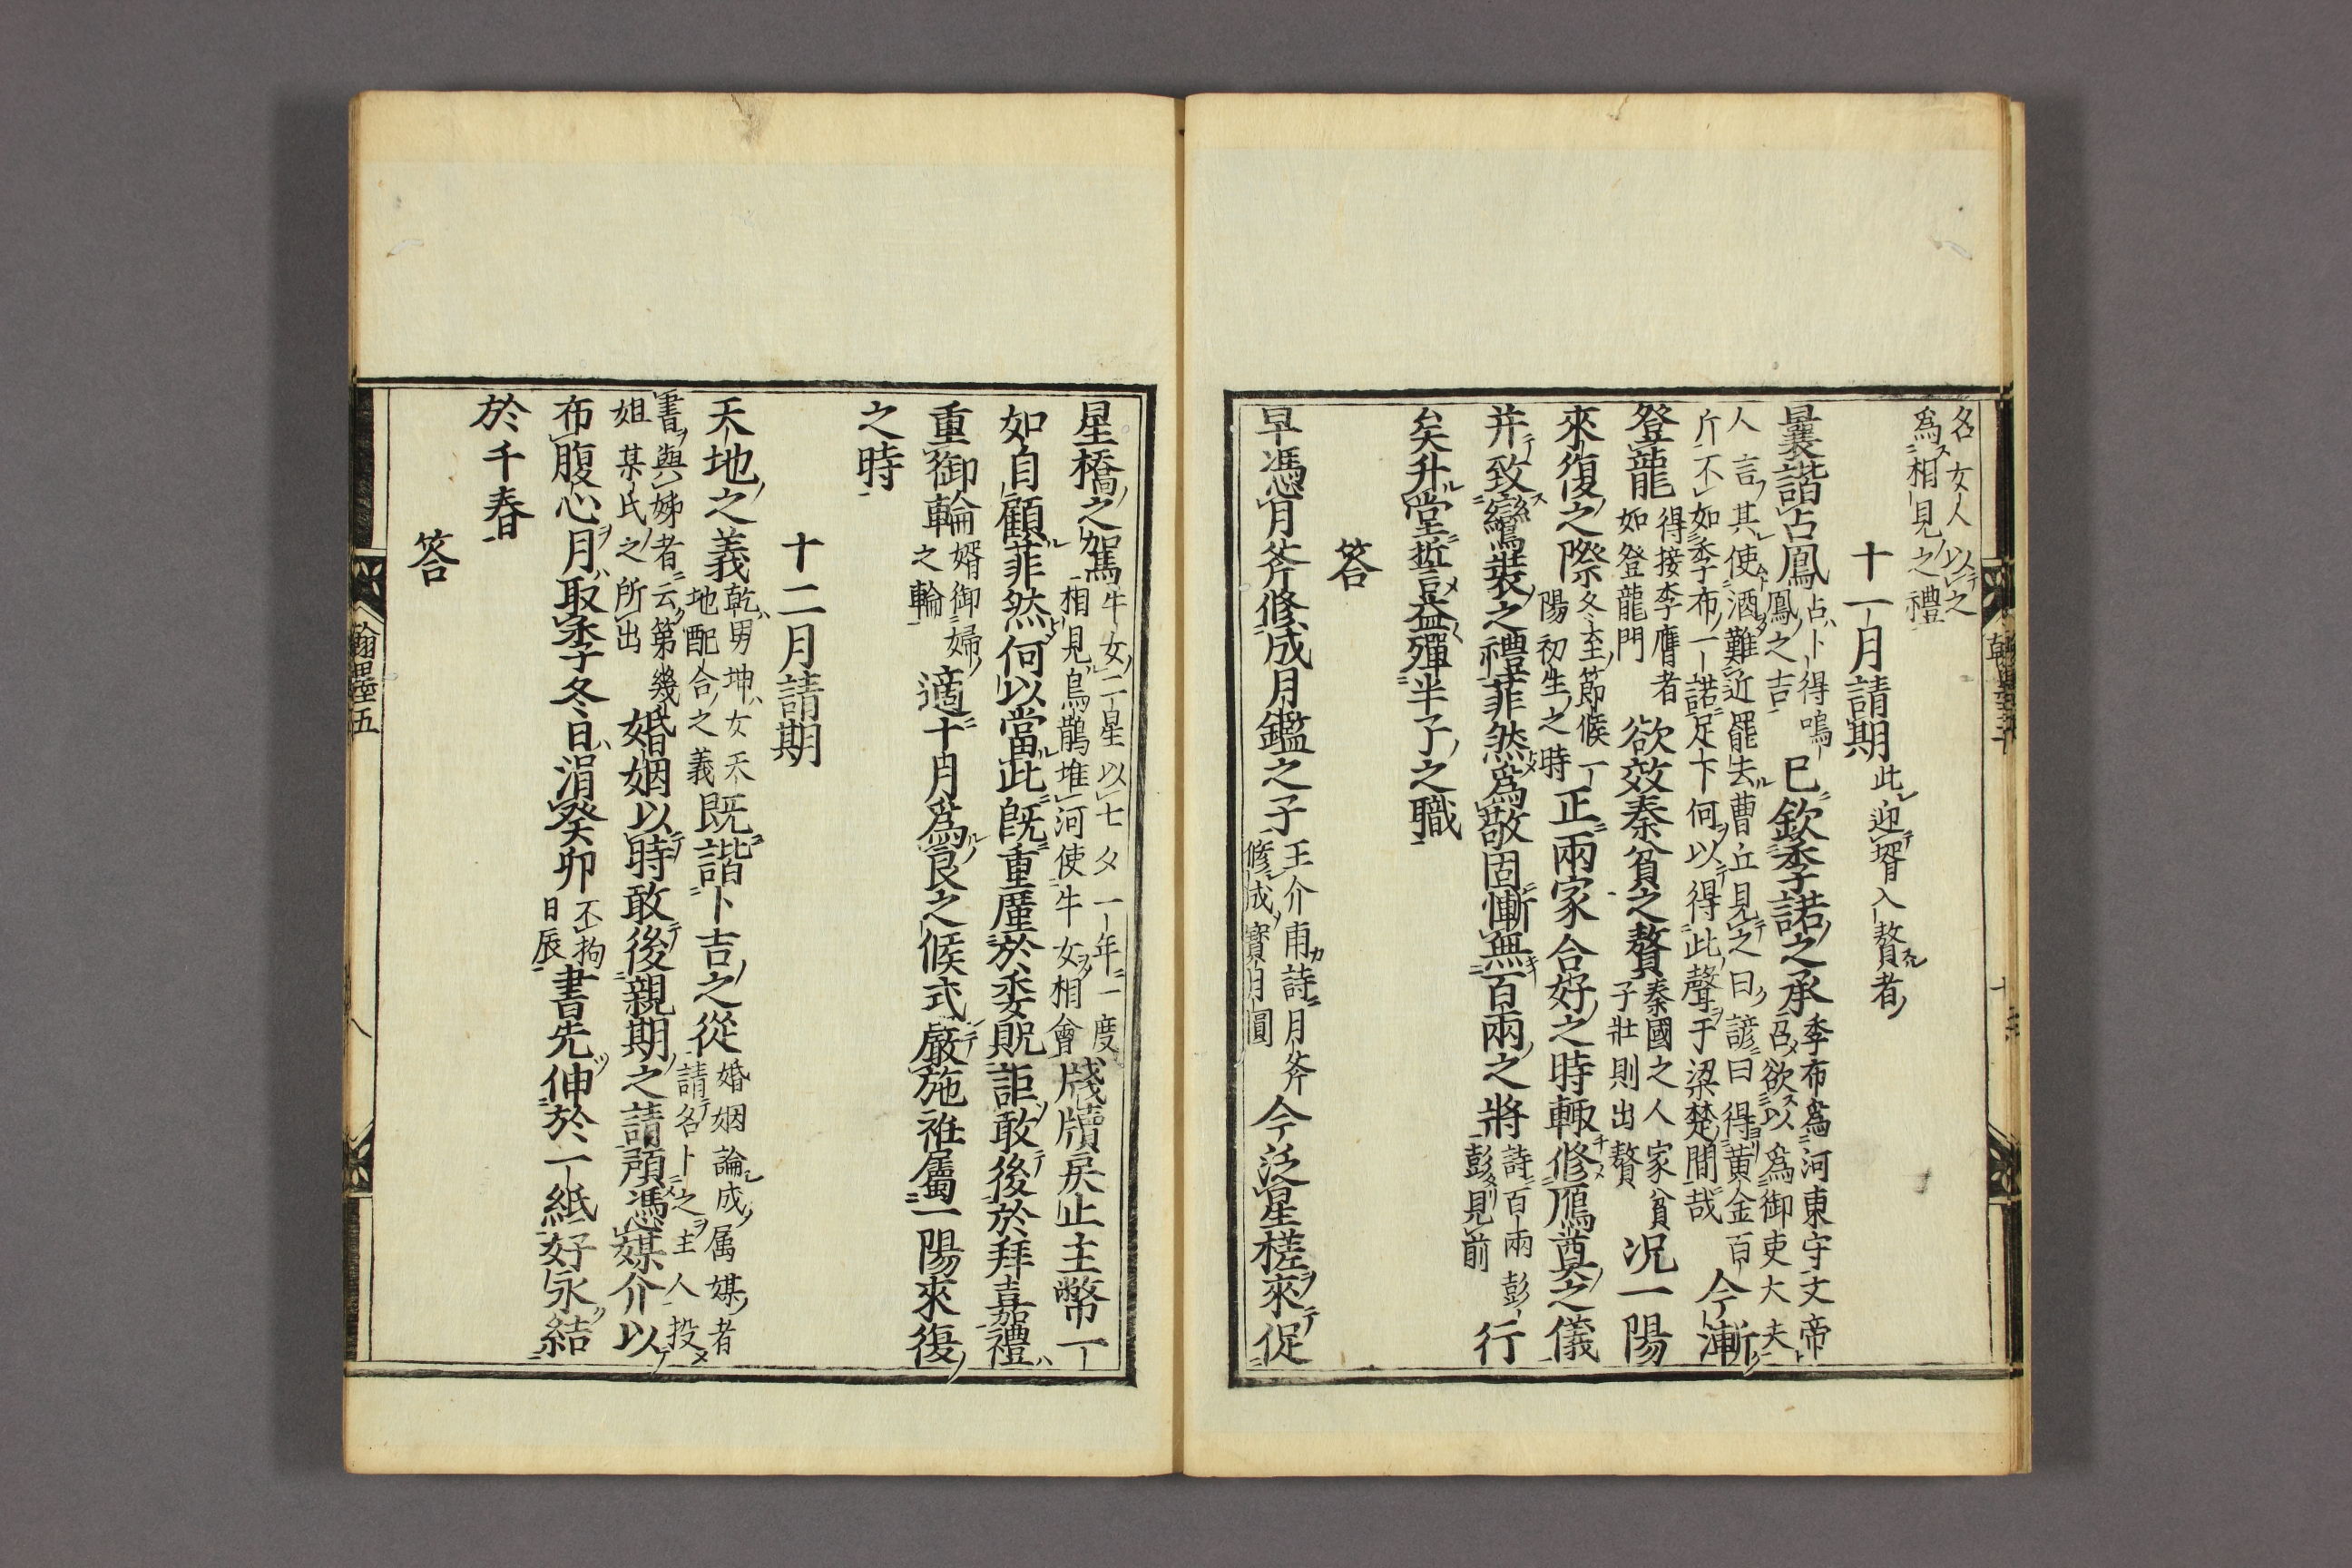 名女人以之
爲相見之禮
十一月請期 此迎壻入贅者
曩諧占鳳 占卜得鳴鳳之吉 已欽季諾之承 季布爲河東守文帝召欲以爲御吏大夫
人言其使酒難近罷去曹丘見之曰諺曰得黄金百
斤不如季布一諾足下何以得此聲于梁楚間哉 今漸
登龍 得接李膺者如登龍門 欲效秦貧之贅 秦國之人家貧子壯則出贅 况一陽
來復之際 冬至節候一陽初生之時 正兩家合好之時輙修鴈奠之儀
并致鸞裝之禮菲然爲敬固慚無百兩之將 詩百兩彭彭見前 行
矣升堂誓益殫半子之職
答
早憑月斧修成月鑑之子 王介甫詩月斧修成寶月圓 今泛星槎來促
星橋之駕 牛女二星以七夕一年一度相見烏鵲堆河使牛女相會 牋牘戾止主幣一
如自顧菲然何以當此既重廑於委貺詎敢後於拜嘉禮
重御輪 婿御婦之輪 適十月爲良之候式嚴施袵屬一陽來復
之時
十二月請期
天地之義 乾男坤女天地配合之義 既諧卜吉之從 婚姻論成属媒者請名卜之主人投
書與姊者云第幾
姐某氏之所出 婚姻以時敢後親期之請頎憑媒介以
布腹心月取季冬日涓癸卯 不拘日辰 書先伸於一紙好永結
於千春
答
翰墨五
八